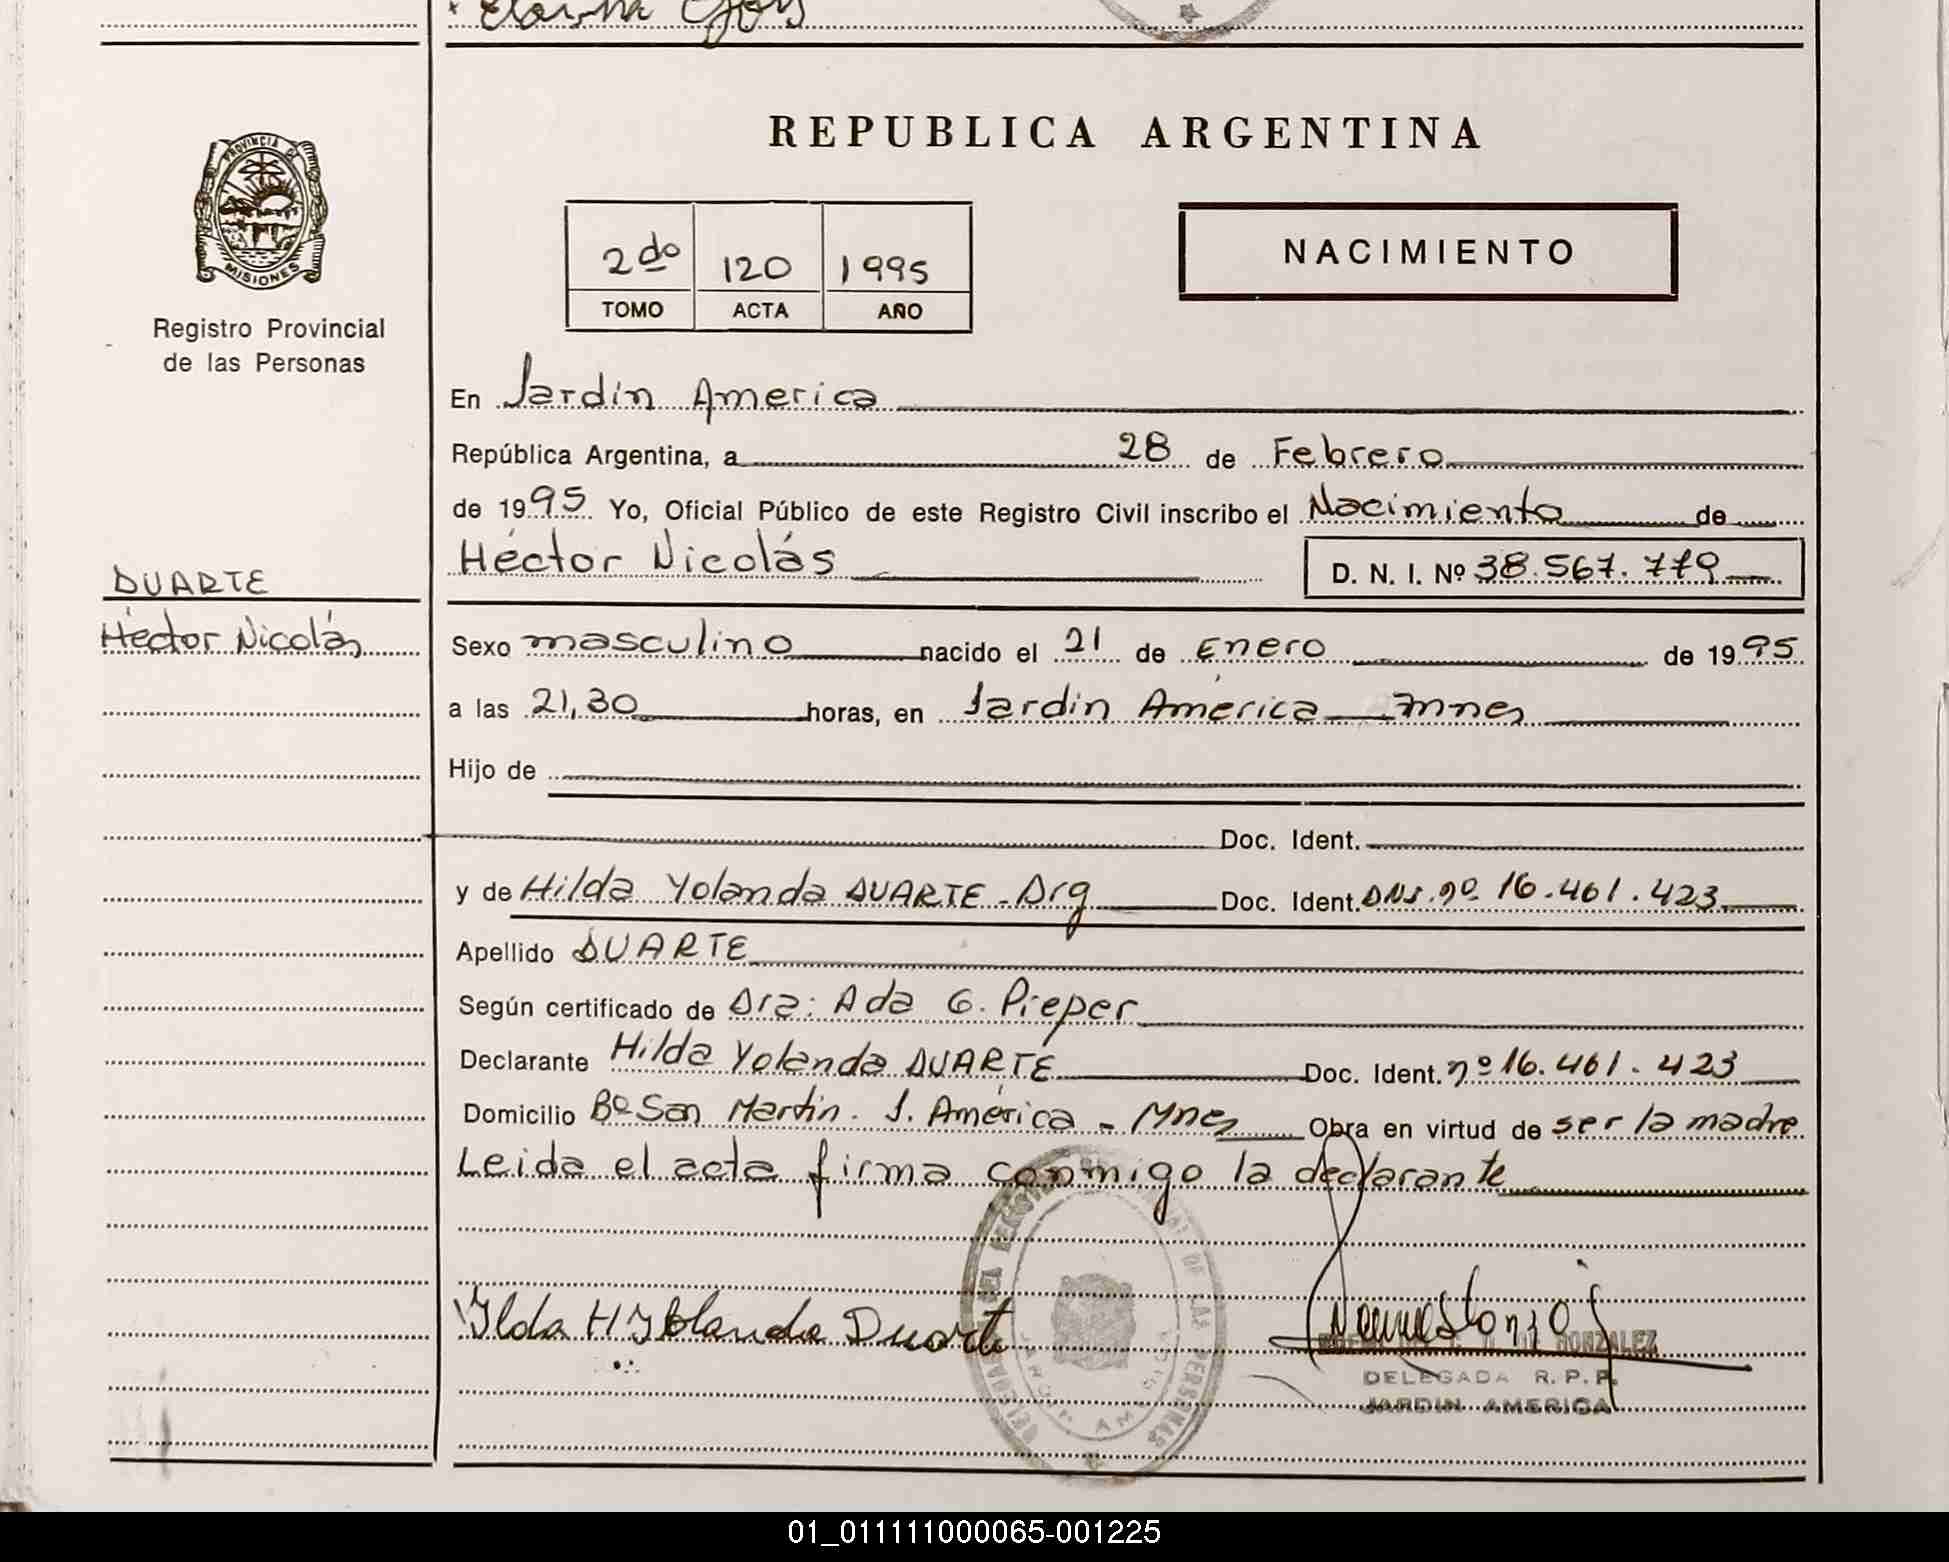 REPUBLICA ARGENTINA
PROVINCIA DE MISIONES
Registro Provincial
de las Personas
2do 120 1995
TOMO ACTA AÑO
NACIMIENTO
En Jardín America
República Argentina, a 28 de Febrero
de 1995 Yo, Oficial Público de este Registro Civil inscribo el Nacimiento de
Héctor Nicolás D. N. I. Nº 38.567.779
DUARTE
Héctor Nicolás
Sexo masculino nacido el 21 de Enero de 1995
a las 21,30 horas, en Jardin América Mnes
Hijo de
Doc. Ident.
y de Hilda Yolanda DUARTE - Arg Doc. Ident. DNI. nº 16.461.423
Apellido DUARTE
Según certificado de Dra: Ada G. Pieper
Declarante Hilda Yolanda DUARTE Doc. Ident. nº 16.461.423
Domicilio Bº San Martin. J. América - Mnes Obra en virtud de ser la madre
Leida el acta firma conmigo la declarante
DE LAS PERSONAS
JARDIN AMERICA
Duarte
GONZALEZ
DELEGADA R.P.P.
JARDIN AMERICA
01_011111000065-001225